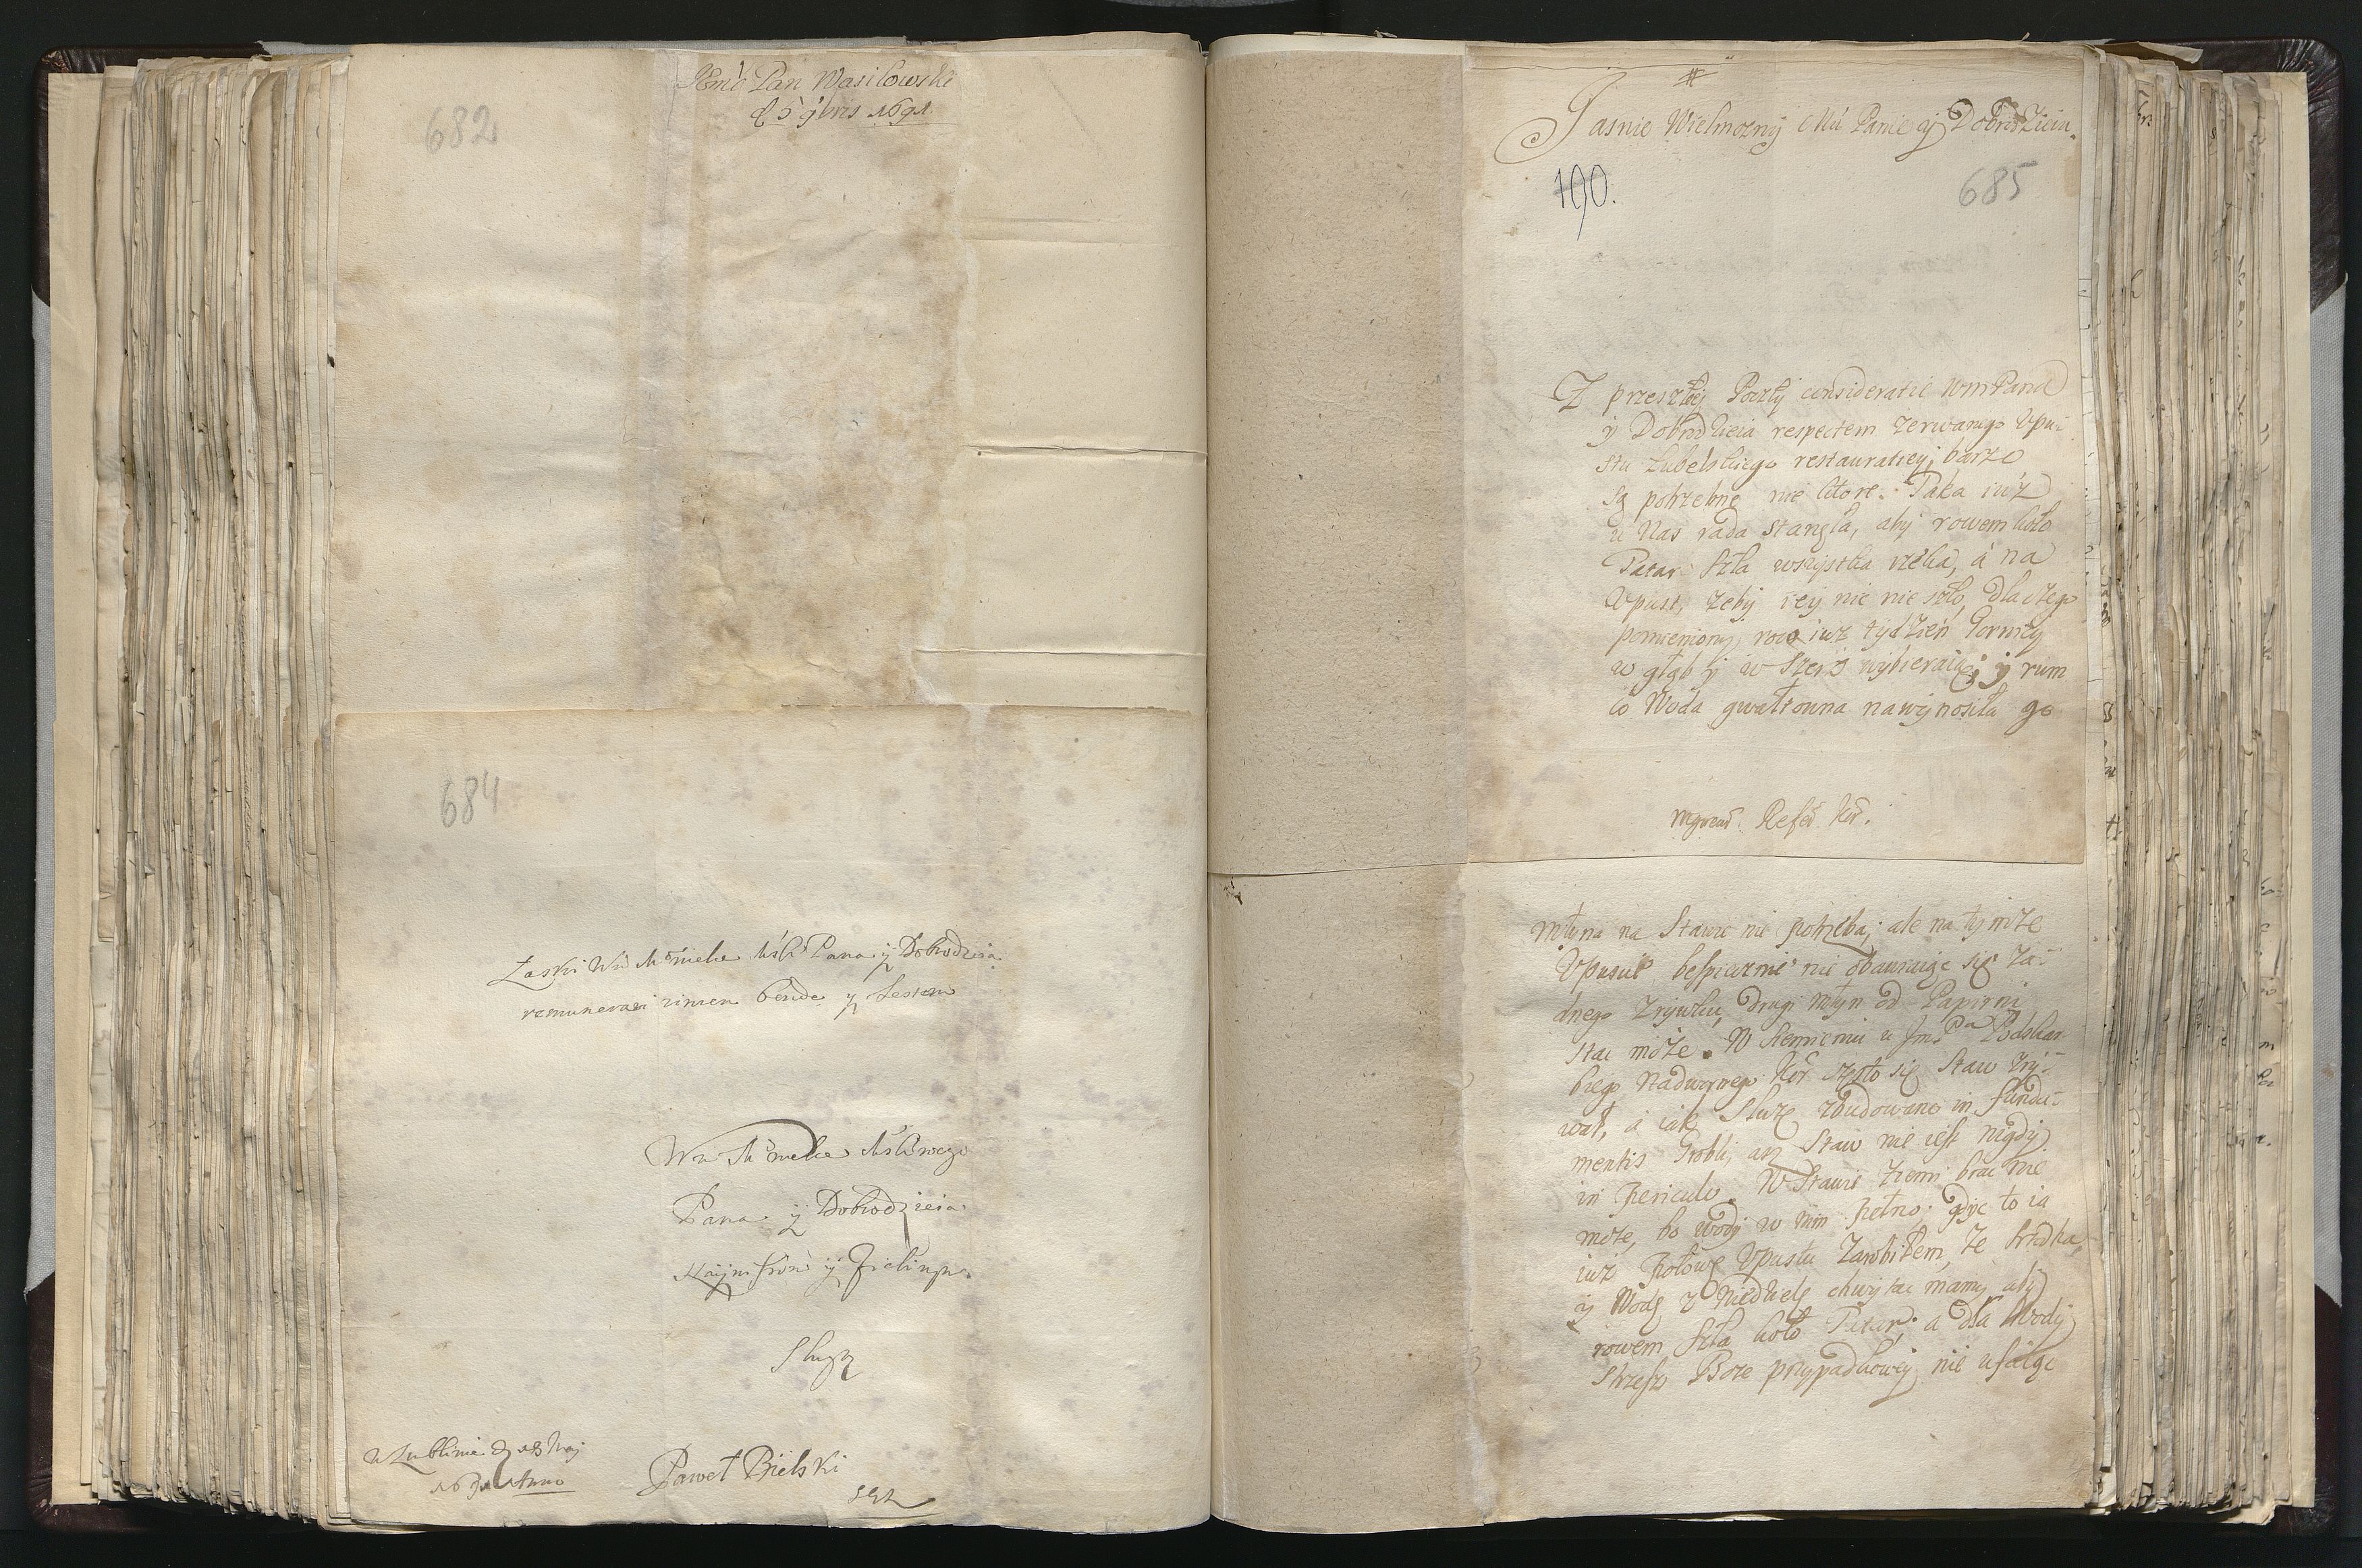 682
Jemć Pan Wasilowski
d 5 9bris 1691.
684
Łaski Wm Mśći Pana y Dobrodzieia
remunerari zimen bende y Jestem
Wm
Pana y Dobrodzieia
Slugą
w Lublinie d 18 Maj
1691 Anno
Paweł Bielski
Jasnie Wielmozny Mći Panie y Dobrodzieiu.
190.
685
Z przeszłey Poczty consideratie WmPana
y Dobrodzieia respectem zerwanego Vpu-
stu Lubelskiego restauratiey, barzo
są potrzebne nie ktore. Taka iuz
u Nas rada stanęła, aby rowem koło
Tatar szła wszystka rzeka, á na
Vpust, zeby iey nic nie szło, dla czego
pomieniony row iuz tydzien Gornicy
w głąb y w szerz wybieraią; y rum
co Woda gwałtowna nawynosiła go
Refer Kor.
młyna na Stawie nie potrzeba; ale na tymze
Vpuscie bespiecznie nie obawaiąc się za-
dnego zrywku, drugi młyn od Papirni
stac może. W Kemieniu u Jmc Pa Podskar
biego Nadwornego Kor często się Staw zry-
wał, á iak Sluzę zbudowano in funda-
mentis Grobli, asz Staw nie iest nigdy
in periculo. W Stawie ziemi brac nie
moze, bo wody w nim pełno; gdyc to ia
iuz połowę Vpustu zarobiłem, ze srzodka,
y Wodę z Niedziele chwytac mamy aby
rowem szła koło Tatar; a dla Wody
strzesz Boze przypadkowey nie ufaiąc